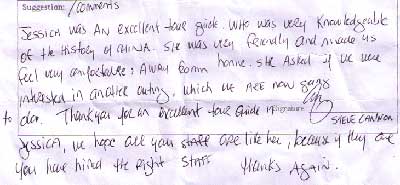 Suggestion: /comments
Jessica was An excellent tour guide. Who was very knowledgeable
of the History of CHINA. She was very friendly and made us
feel very comfortable; Away from home. she Asked if we were
interested in another outing, which we are now going
to do. Thank you for an Excellent tour Guide in Signature
STEVE CANNON
Jessica, we hope all your staff are like her, because if they are
you have hired the Right Staff thanks Again.